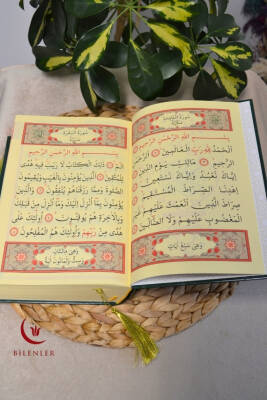 سُورَةُ الْفَاتِحَةِ
بِسْمِ اللّٰهِ الرَّحْمٰنِ الرَّحِيمِ
اَلْحَمْدُ لِلّٰهِ رَبِّ الْعَالَمِينَ الرَّحْمٰنِ
الرَّحِيمِ مَالِكِ يَوْمِ الدِّينِ
اِيَّاكَ نَعْبُدُ وَاِيَّاكَ نَسْتَعِينُ
اِهْدِنَا الصِّرَاطَ الْمُسْتَقِيمَ
صِرَاطَ الَّذِينَ اَنْعَمْتَ عَلَيْهِمْ غَيْرِ
الْمَغْضُوبِ عَلَيْهِمْ وَلَا الضَّالِّينَ
وَهِيَ سَبْعُ اٰيَاتٍ
سُورَةُ الْبَقَرَةِ
بِسْمِ اللّٰهِ الرَّحْمٰنِ الرَّحِيمِ
الٓمٓ ذٰلِكَ الْكِتَابُ لَا رَيْبَ فِيهِ هُدًى
لِلْمُتَّقِينَ اَلَّذِينَ يُؤْمِنُونَ بِالْغَيْبِ وَيُقِيمُونَ
الصَّلٰوةَ وَمِمَّا رَزَقْنَاهُمْ يُنْفِقُونَ وَالَّذِينَ
يُؤْمِنُونَ بِمَا اُنْزِلَ اِلَيْكَ وَمَا اُنْزِلَ مِنْ قَبْلِكَ
وَبِالْاٰخِرَةِ هُمْ يُوقِنُونَ اُو۬لٰئِكَ عَلٰى
هُدًى مِنْ رَبِّهِمْ وَاُو۬لٰئِكَ هُمُ الْمُفْلِحُونَ
وَهِيَ مِائَتَانِ
وَسِتٌّ وَثَمَانُونَ اٰيَةً
BİLENLER